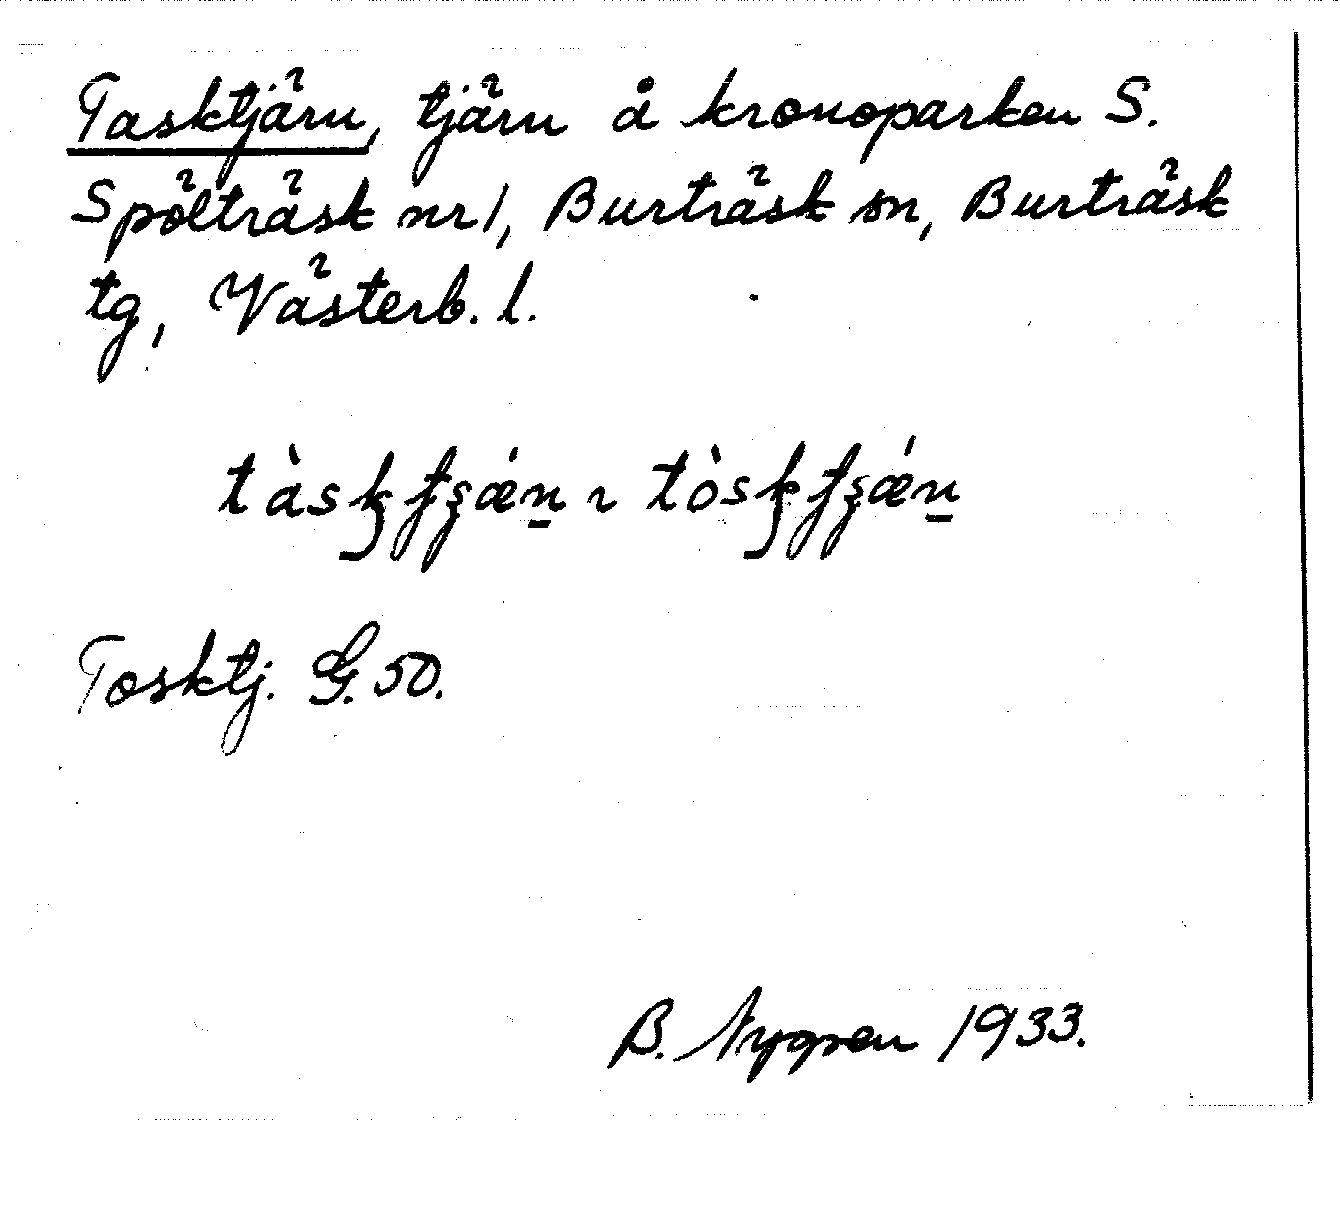 Tasktjärn, tjärn å kronoparken S.
Spölträsk nr 1, Burträsk sn, Burträsk
tg, Västerb. l.
Tosktj. G. 50.
B. Nygren 1933.